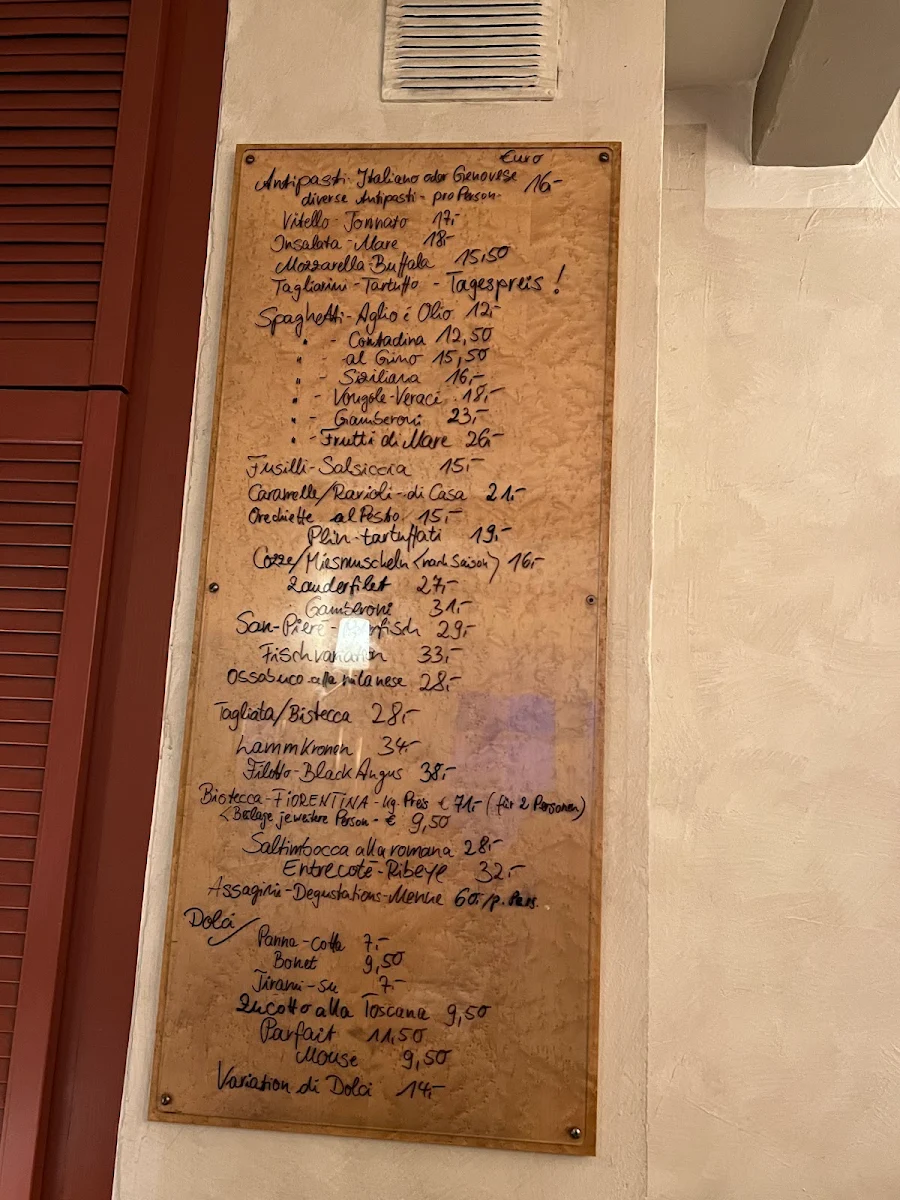 Euro
Antipasti-Italiano oder Genovese 16,-
diverse Antipasti - pro Person -
Vitello-Tonnato 17,-
Insalata-Mare 18,-
Mozzarella-Buffala 15,50
Tagliarini-Tartuffo - Tagespreis!
Spaghetti-Aglio é Olio 12,-
" - Contadina 12,50
" - al Gino 15,50
" - Siziliana 16,-
" - Vongole-Veraci 18,-
" - Gamberoni 23,-
" - Frutti di Mare 26,-
Fusilli-Salsiccia 15,-
Caramelle/Ravioli-di Casa 21,-
Orechiette al Pesto 15,-
Plin-tartuffati 19,-
Cozze/Miesmuscheln (nach Saison) 16,-
Zanderfilet 27,-
Gamberoni 31,-
San-Piere- 29,-
Fischvariation 33,-
Ossobuco alla milanese 28,-
Tagliata/Bistecca 28,-
Lammkronen 34,-
Filetto-Black Angus 38,-
Bistecca-FIORENTINA-kg. Preis € 71,- (für 2 Personen)
<Beilage je weitere Person - € 9,50
Saltimbocca alla romana 28,-
Entrecote-Ribeye 32,-
Assagini-Degustations-Menue 60,-/p. Pers.
Dolci/
Panna-cotta 7,-
Bonet 9,50
Tirami-su 7,-
Zucotto alla Toscana 9,50
Parfait 11,50
Mouse 9,50
Variation di Dolci 14,-